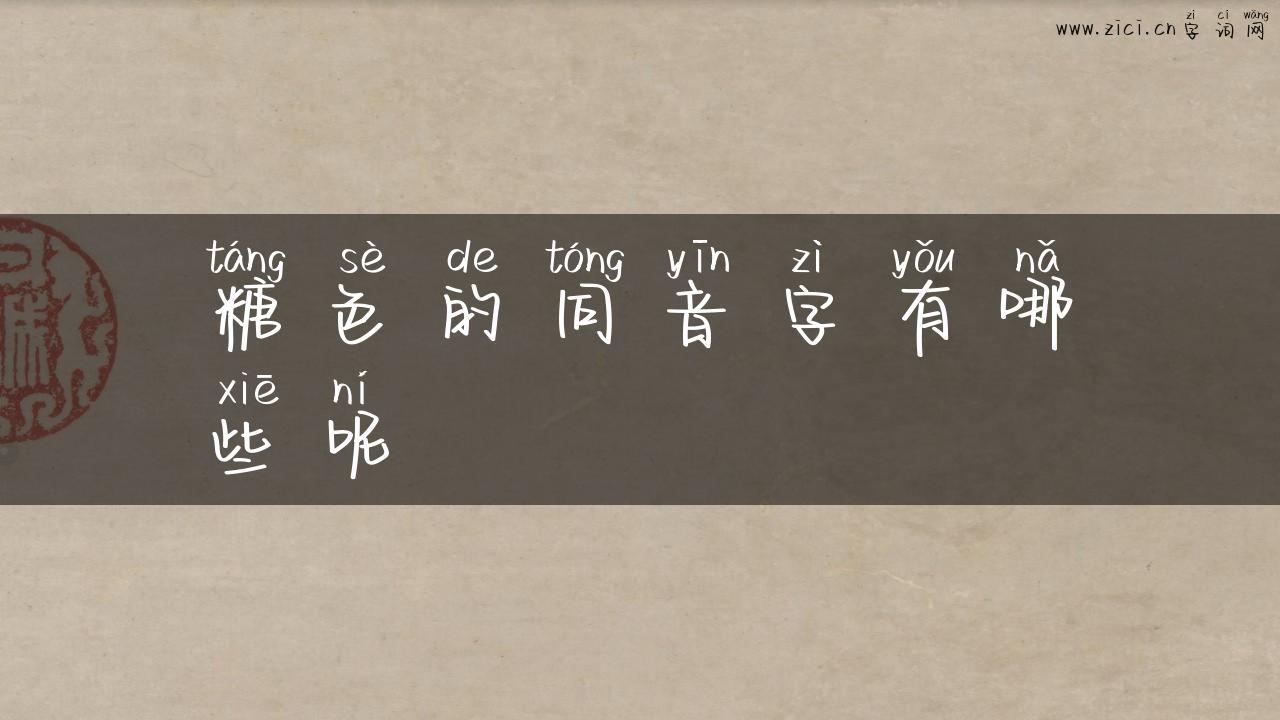 zì cí wǎng
www.zici.cn字词网
táng sè de tóng yīn zì yǒu nǎ
糖色的同音字有哪
xiē ní
些呢